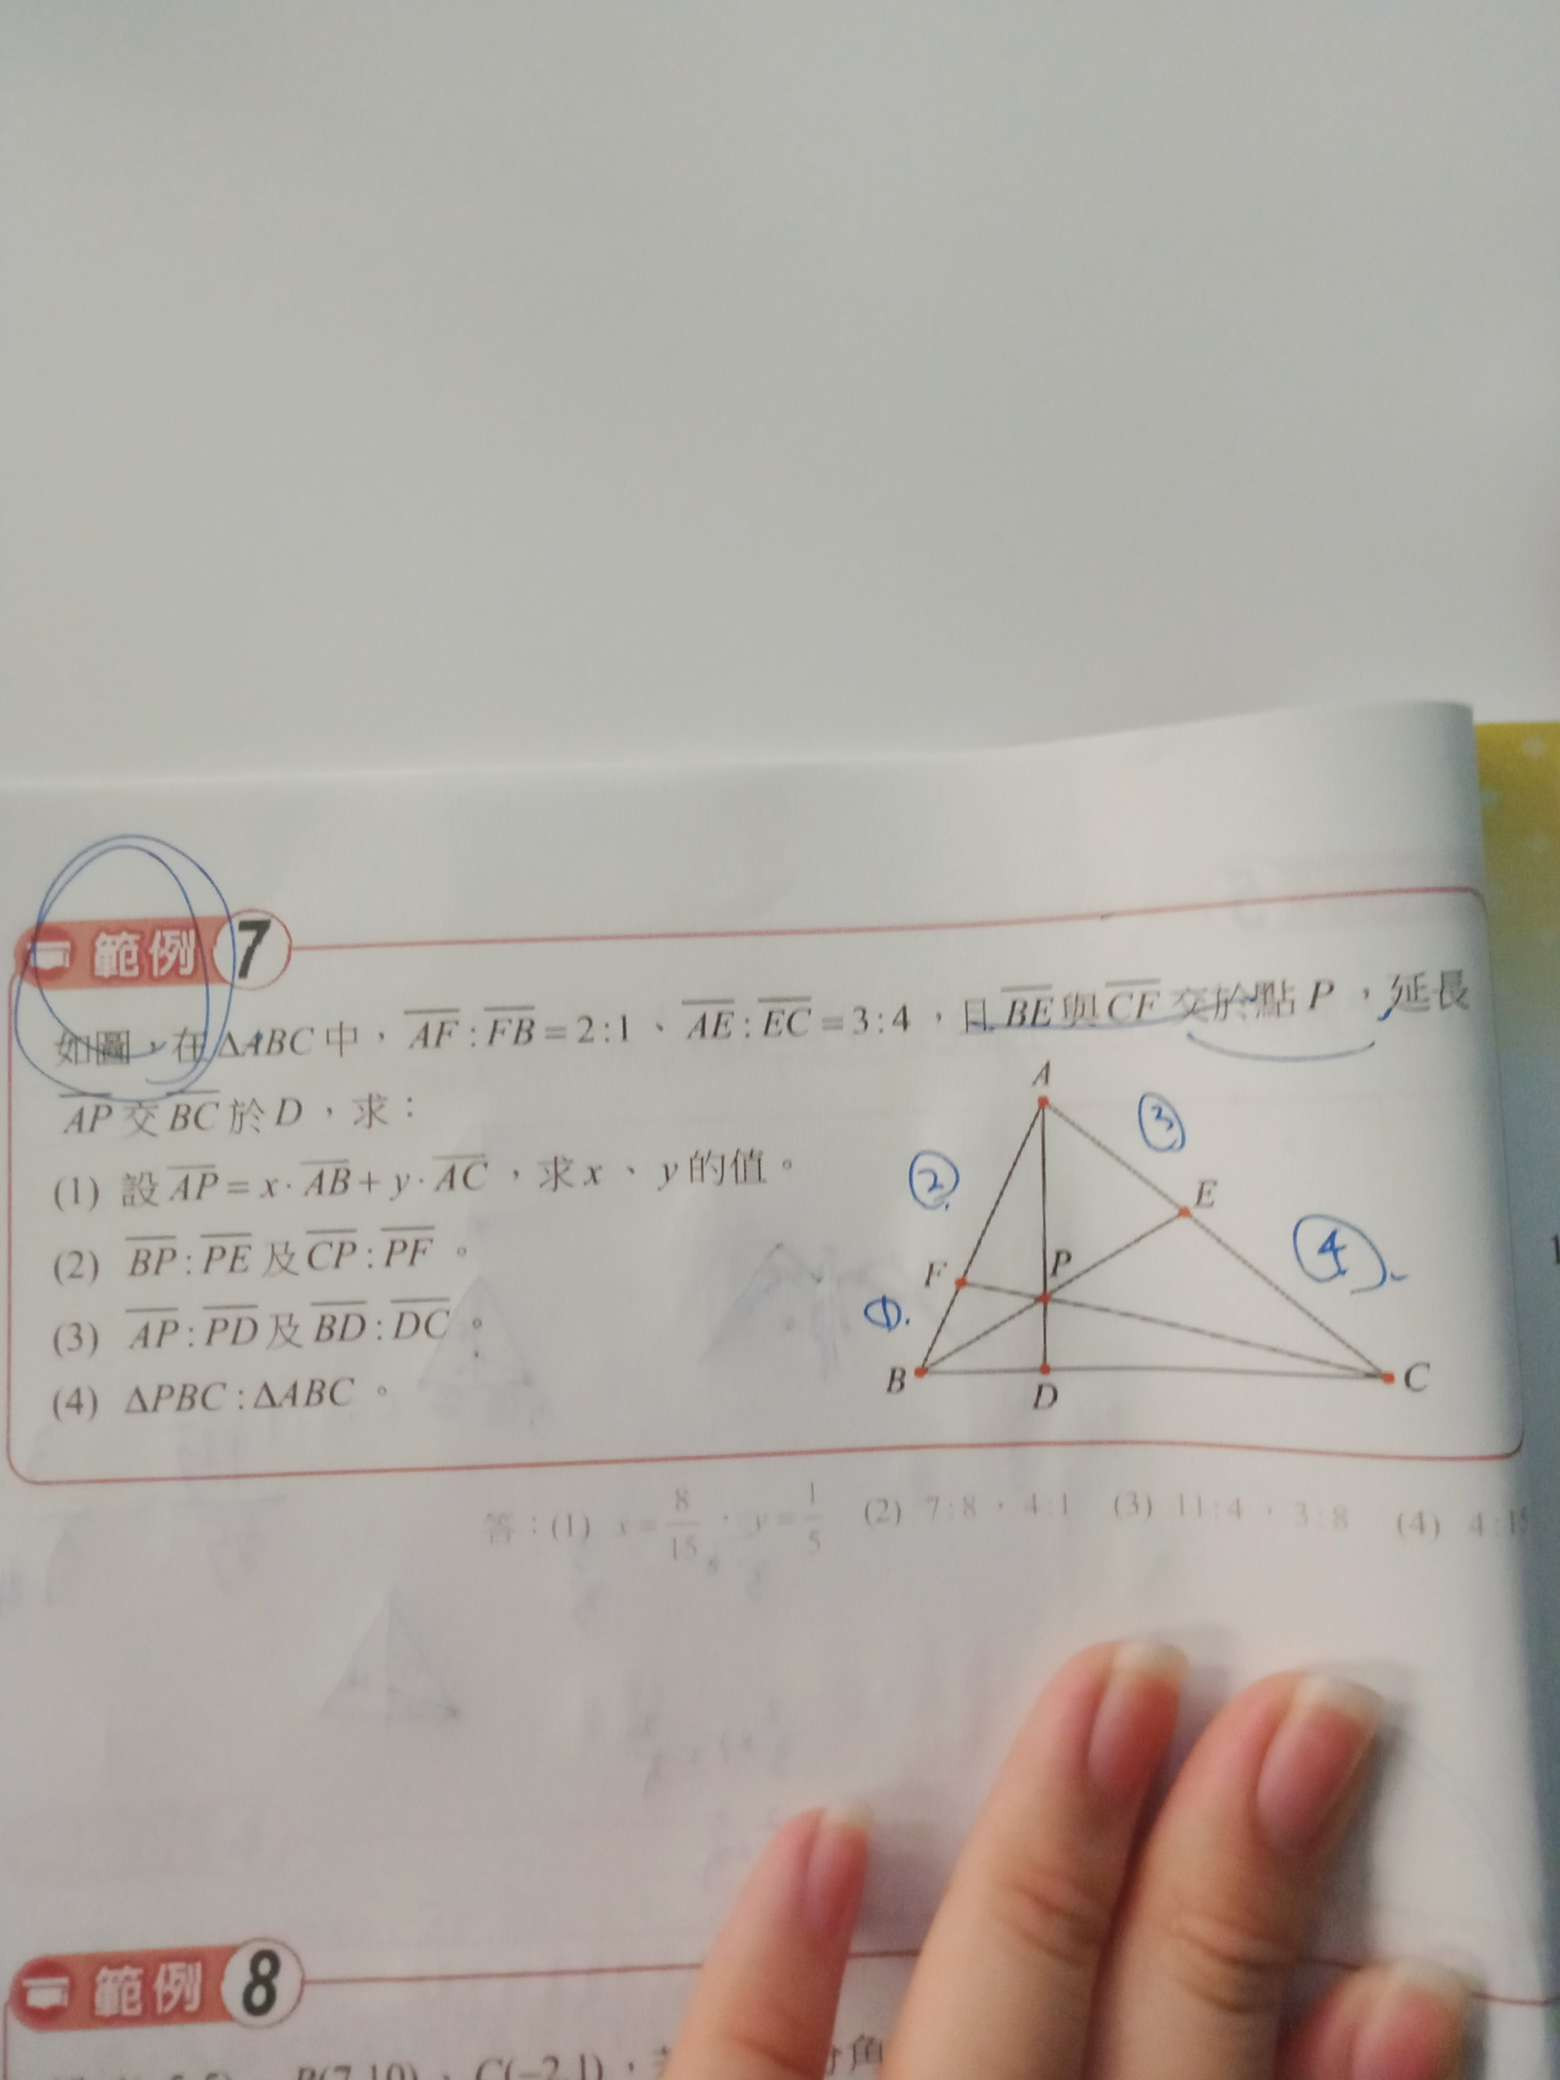 範例 7
如圖，在ΔABC中，AF:FB=2:1、AE:EC=3:4，且BE與CF交於點P，延長
AP交BC於D，求：
(1) 設AP=x·AB+y·AC，求x、y的值。
(2) BP:PE及CP:PF。
(3) AP:PD及BD:DC。
(4) ΔPBC:ΔABC。
A
③
②
E
④
F
P
①.
B
D
C
答：(1) x=8/15，y=1/5 (2) 7:8，4:1 (3) 11:4，3:8 (4) 4:15
範例 8
B(7,10)、C(-2,1)，
角